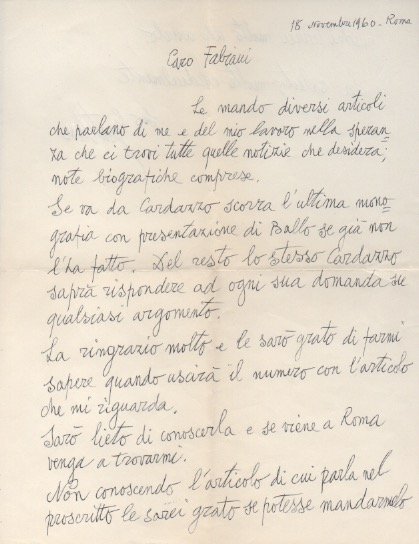 18 Novembre 1960. Roma
Caro Fabiani
Le mando diversi articoli
che parlano di me e del mio lavoro nella speran=
za che ci trovi tutte quelle notizie che desidera;
note biografiche comprese.
Se va da Cardazzo scorra l'ultima mono=
grafia con presentazione di Ballo se già non
l'ha fatto. Del resto lo stesso Cardazzo
saprà rispondere ad ogni sua domanda su
qualsiasi argomento.
La ringrazio molto e le sarò grato di farmi
sapere quando uscirà il numero con l'articolo
che mi riguarda.
Sarò lieto di conoscerla e se viene a Roma
venga a trovarmi.
Non conoscendo l'articolo di cui parla nel
proscritto le sarei grato se potesse mandarmelo